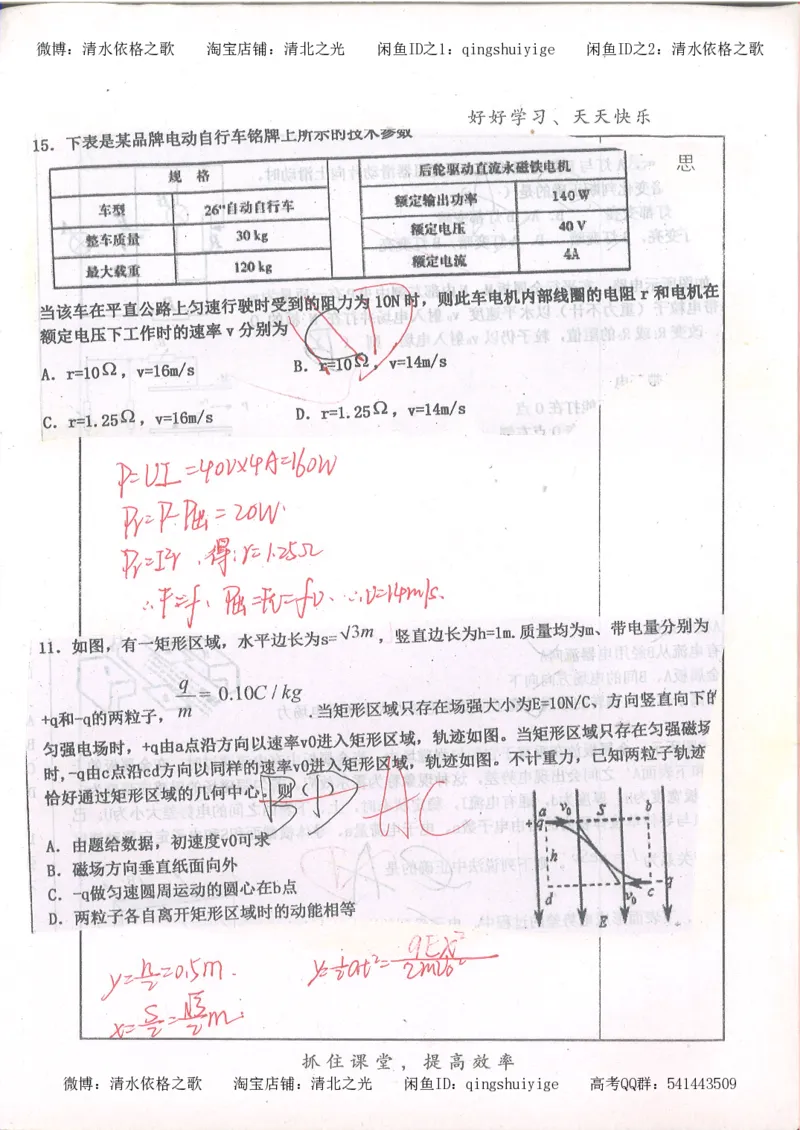 微博：清水依格之歌 淘宝店铺：清北之光 闲鱼ID之1：qingshuiyige 闲鱼ID之2：清水依格之歌
好好学习、天天快乐
15. 下表是某品牌电动自行车铭牌上所示的技术参数
思
规 格 后轮驱动直流永磁铁电机
车型 26"自动自行车 额定输出功率 140W
整车质量 30kg 额定电压 40V
最大载重 120kg 额定电流 4A
当该车在平直公路上匀速行驶时受到的阻力为10N时，则此车电机内部线圈的电阻 r 和电机在
额定电压下工作时的速率 v 分别为
A. r=10Ω，v=16m/s B. r=10Ω，v=14m/s
C. r=1.25Ω，v=16m/s D. r=1.25Ω，v=14m/s
P=UI=40V×4A=160W
Pr=P-P出=20W.
Pr=I²r，得：r=1.25Ω
∴F=f、P出=Fv=fv、∴v=14m/s.
11. 如图，有一矩形区域，水平边长为s=√3m，竖直边长为h=1m.质量均为m、带电量分别为
+q和-q的两粒子，q/m=0.10C/kg.当矩形区域只存在场强大小为E=10N/C、方向竖直向下的
匀强电场时，+q由a点沿方向以速率v0进入矩形区域，轨迹如图。当矩形区域只存在匀强磁场
时，-q由c点沿cd方向以同样的速率v0进入矩形区域，轨迹如图。不计重力，已知两粒子轨迹
恰好通过矩形区域的几何中心。则（ ）
AC
A. 由题给数据，初速度v0可求
B. 磁场方向垂直纸面向外
C. -q做匀速圆周运动的圆心在b点
D. 两粒子各自离开矩形区域时的动能相等
a v₀ S b
+q
h
d v₀ c -q
E
y=h/2=0.5m. y=½at²=qEx²/2mv₀²
x=S/2=√3/2m.
抓住课堂，提高效率
微博：清水依格之歌 淘宝店铺：清北之光 闲鱼ID：qingshuiyige 高考QQ群：541443509